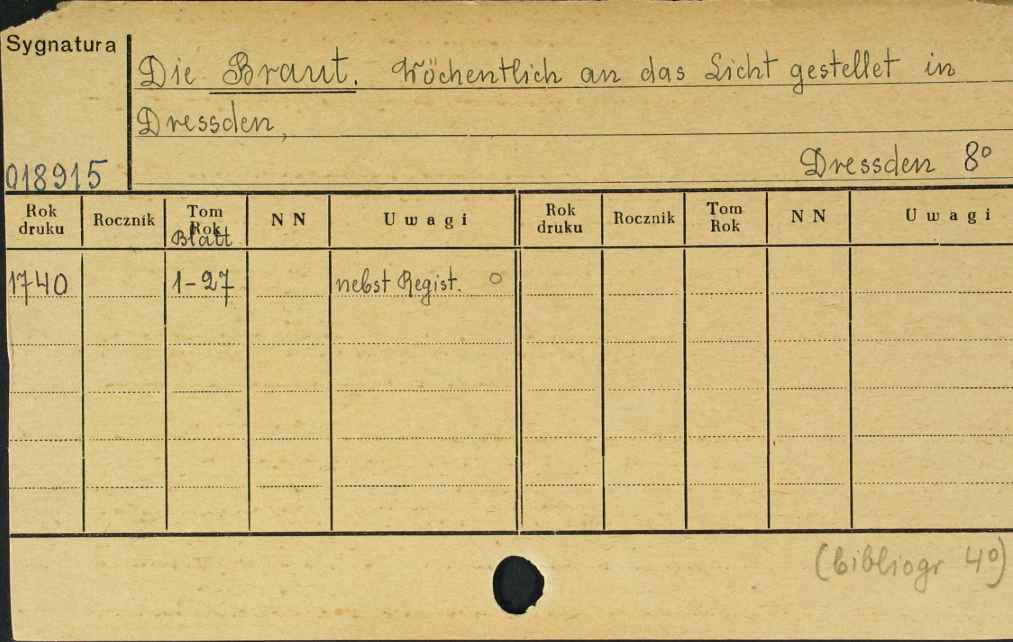 Sygnatura
Die Braut. Wöchentlich an das Licht gestellet in
Dressden,
Dressden 8°
018915
Rok druku Rocznik Tom Rok Blatt N N Uwagi Rok druku Rocznik Tom Rok N N Uwagi
1740 1-27 nebst Regist. o
(bibliogr 4°)